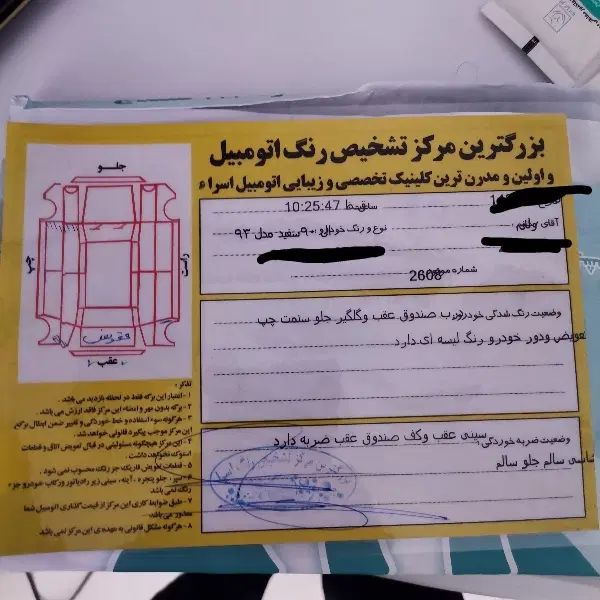 بزرگترین مرکز تشخیص رنگ اتومبیل
و اولین و مدرن ترین کلینیک تخصصی و زیبایی اتومبیل اسراء
10:25:47
آقای
نوع و رنگ خودرو سفید مدل ۹۳
شماره 2608
وضعیت رنگ شدگی خودرو درب صندوق عقب وگلگیر جلو سنمت چپ
تعویض ودور خودرو رنگ لیسه ای دارد
وضعیت ضربه خوردگی سینی عقب وکف صندوق عقب ضربه دارد
شاسی سالم جلو سالم
جلو
چپ
راست
تعویض
عقب
تذکر :
۱ - اعتبار این برگه فقط در لحظه بازدید می باشد .
۲ - برگه بدون مهر و امضاء این مرکز فاقد ارزش می باشد .
۳ - هرگونه سوء استفاده و خط خوردگی و تغییر ضمن ابطال برگه از
این مرکز موجب پیگیرد قانونی خواهد شد .
۴ - این مرکز هیچگونه مسئولیتی در قبال تعویض اتاق و قطعات
استوک نخواهد داشت .
۵ - قطعات تعویض فابریک جز رنگ محسوب نمی شود .
۶ - سپر ، جلو پنجره ، آینه ، سینی زیر رادیاتور ورکاب خودرو جزء
رنگ نمی باشد
۷ - طبق ضوابط کاری این مرکز از قیمت گذاری اتومبیل شما
معذور می باشد .
۸ - هرگونه مشکل قانونی به عهده ی این مرکز نمی باشد